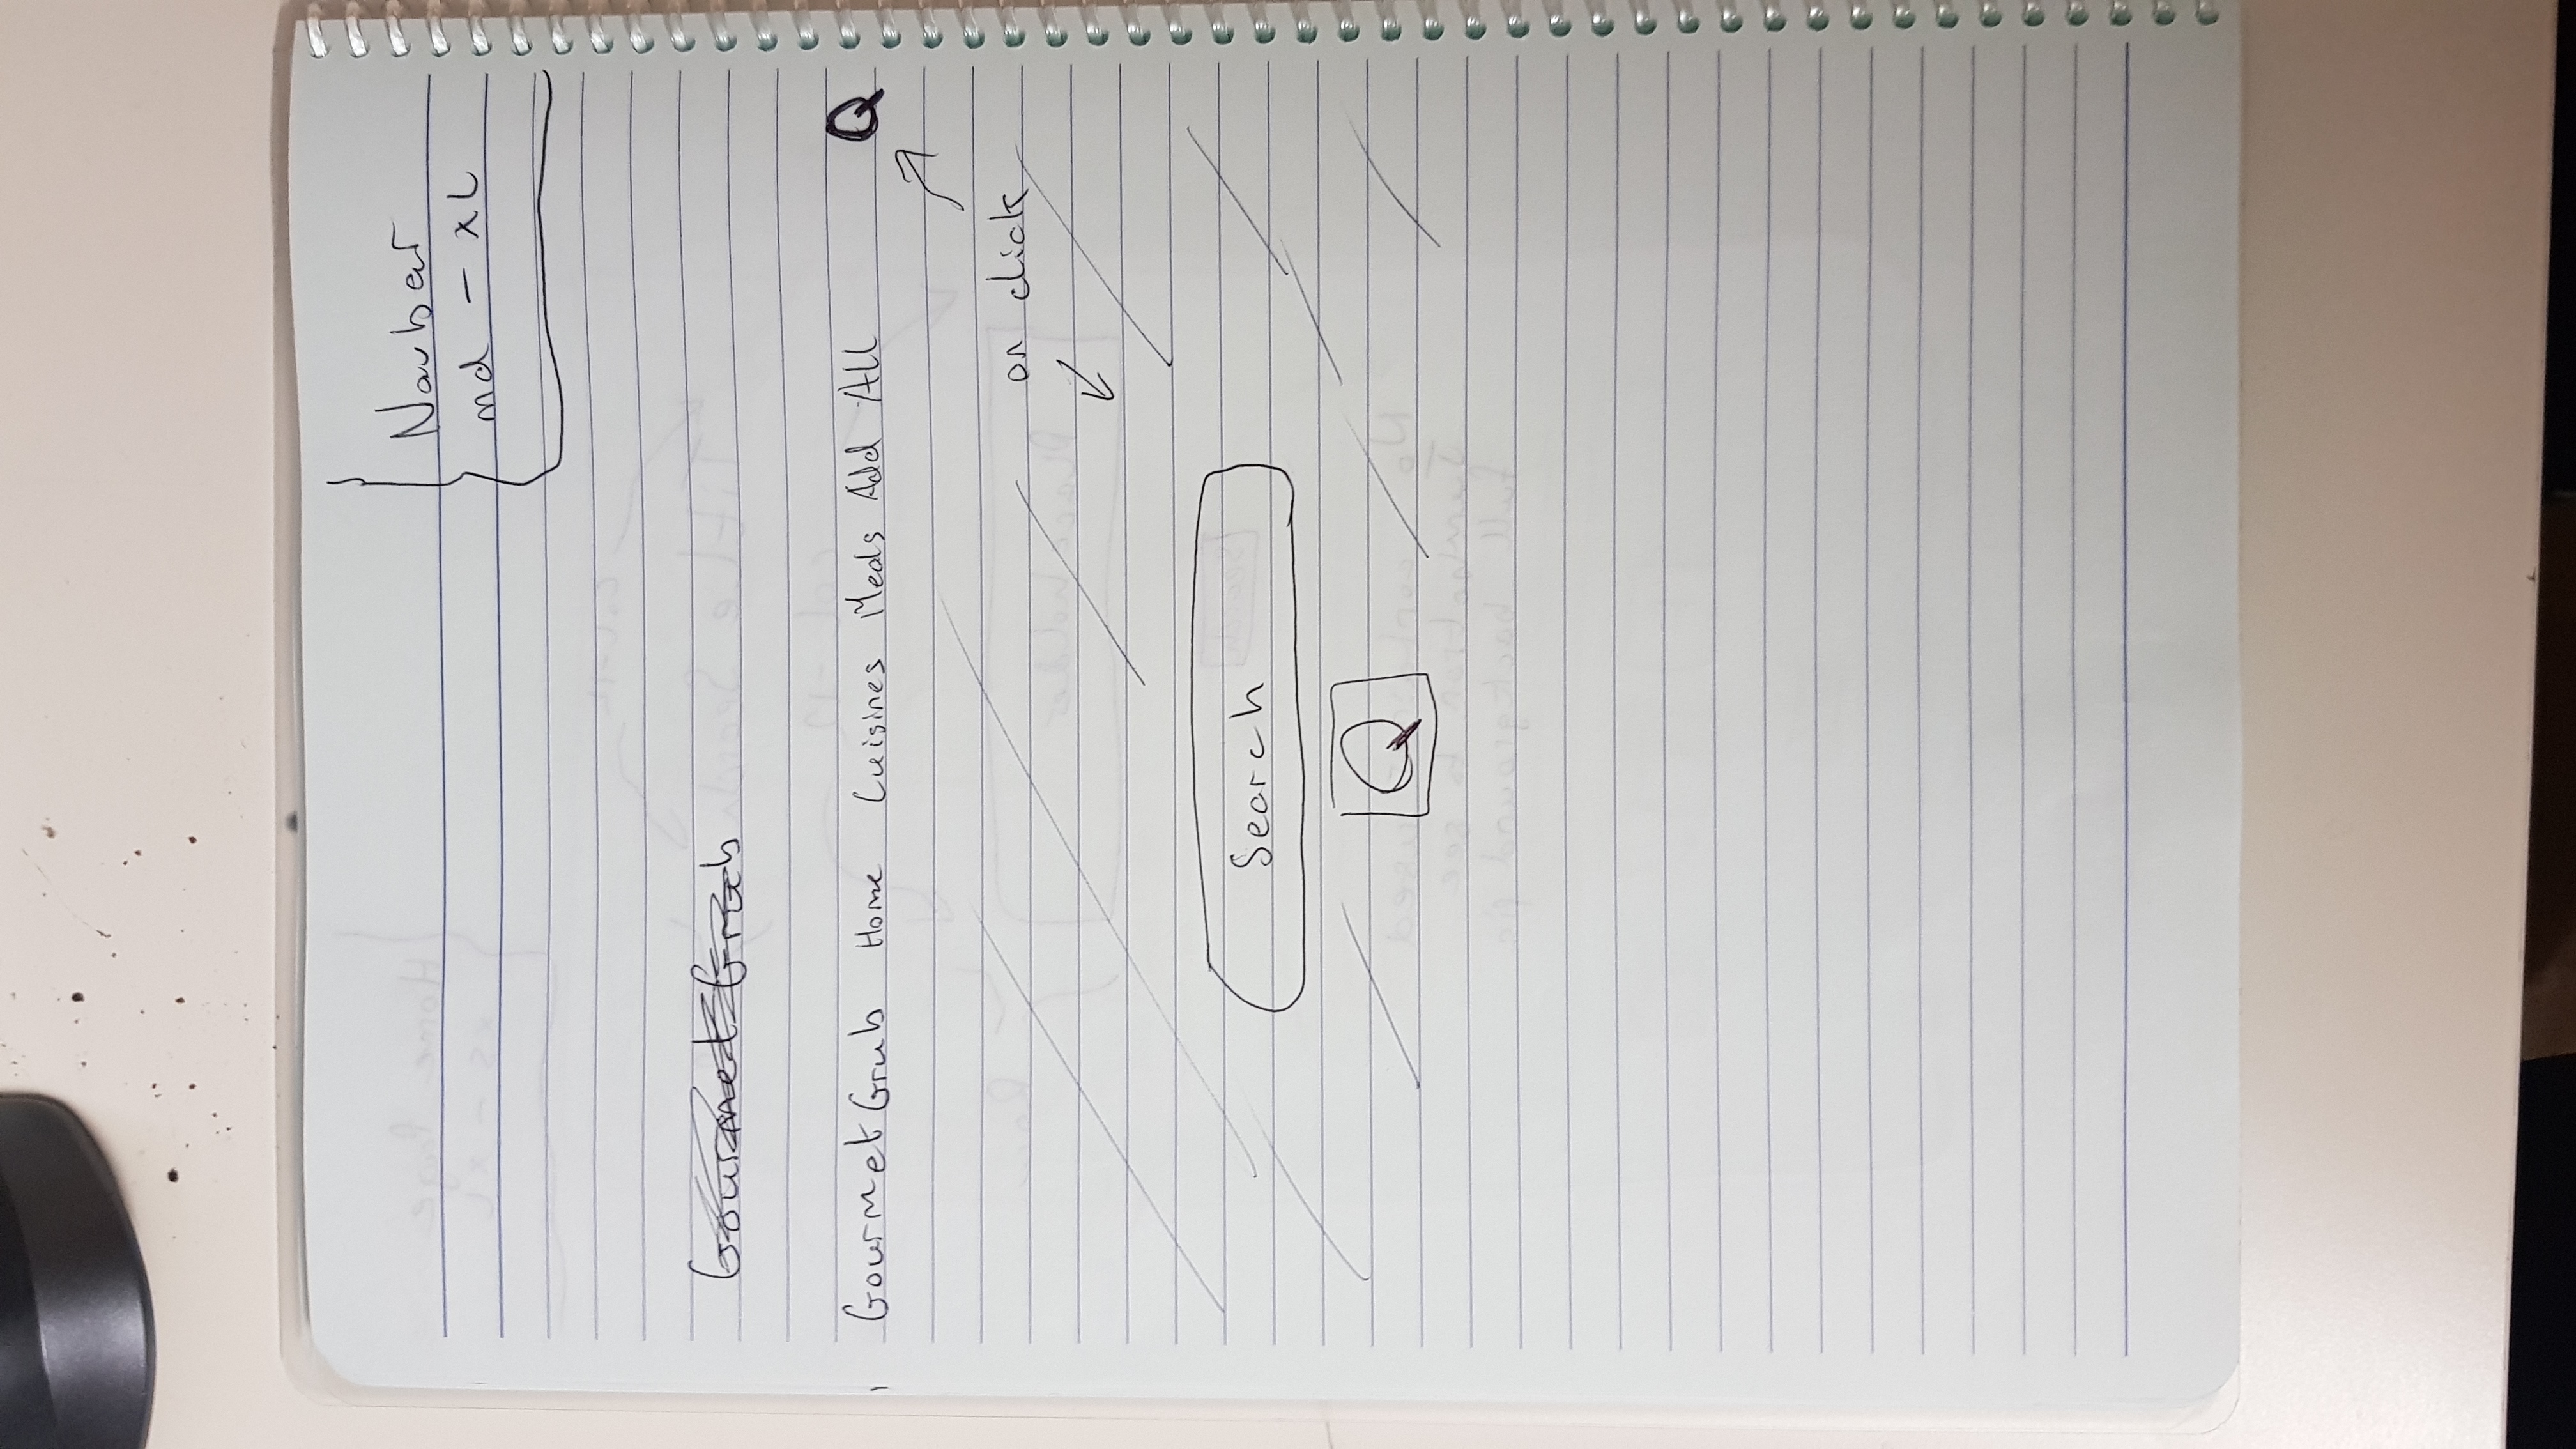 Navbar
md - xL
Gourmet Grub
Gourmet Grub Home Cuisines Meals Add All Q
on click
Search
Q